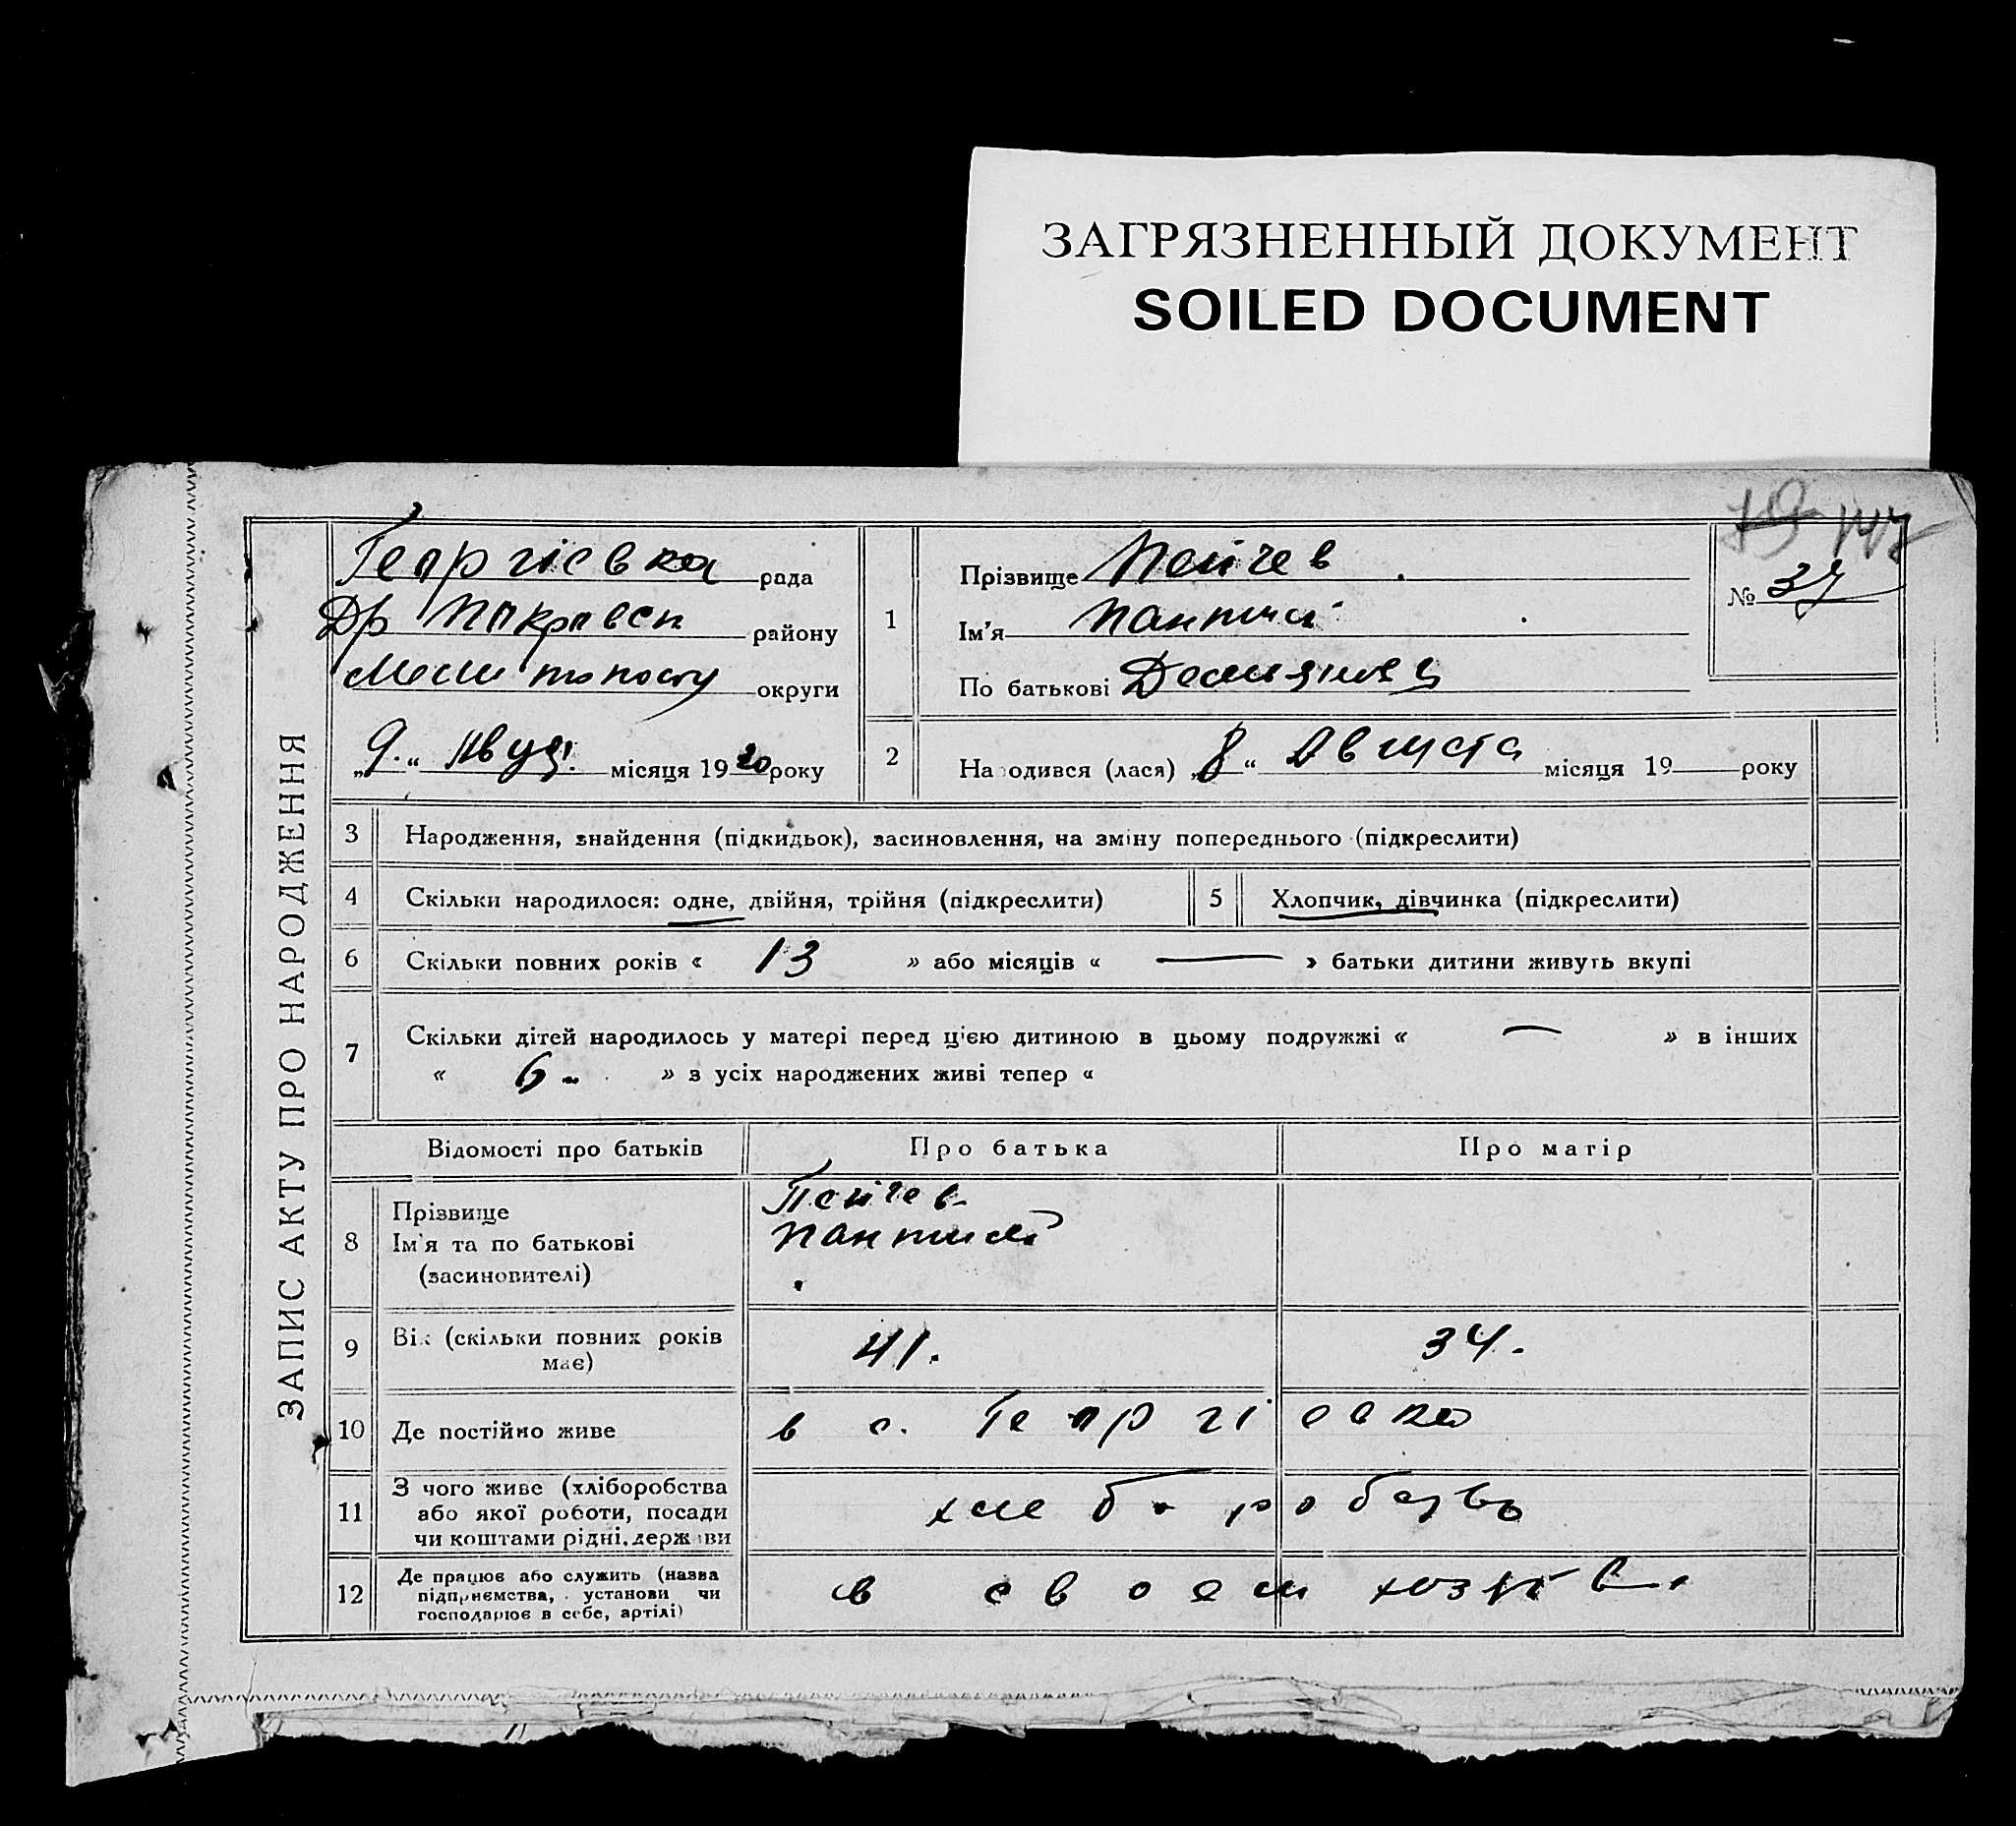 ЗАГРЯЗНЕННЫЙ ДОКУМЕНТ
SOILED DOCUMENT
147
ЗАПИС АКТУ ПРО НАРОДЖЕННЯ
Георгієвка рада
району
округи
„9.“ Авуг. місяця 1920 року
1
Прізвище Пейчев
Ім'я Пантилей
По батькові
№ 37
2
Народився (лася) „8“ Августа місяця 19 — року
3 Народження, знайдення (підкидьок), засиновлення, на зміну попереднього (підкреслити)
4 Скільки народилося: одне, двійня, трійня (підкреслити)
5 Хлопчик, дівчинка (підкреслити)
6 Скільки повних років « 13 » або місяців « — » батьки дитини живуть вкупі
7 Скільки дітей народилось у матері перед цією дитиною в цьому подружжі « — » в інших
« 6 » з усіх народжених живі тепер «
Відомості про батьків Про батька Про матір
8 Прізвище
Ім'я та по батькові
(засиновителі)
Пейчев
Пантилей
9 Вік (скільки повних років
має)
41. 34.
10 Де постійно живе в с. Георгієвка
11 З чого живе (хліборобства
або якої роботи, посади
чи коштами рідні, держави
хлеборобство
12 Де працює або служить (назва
підприємства, установи чи
господарює в себе, артілі)
в своем хозяйств.